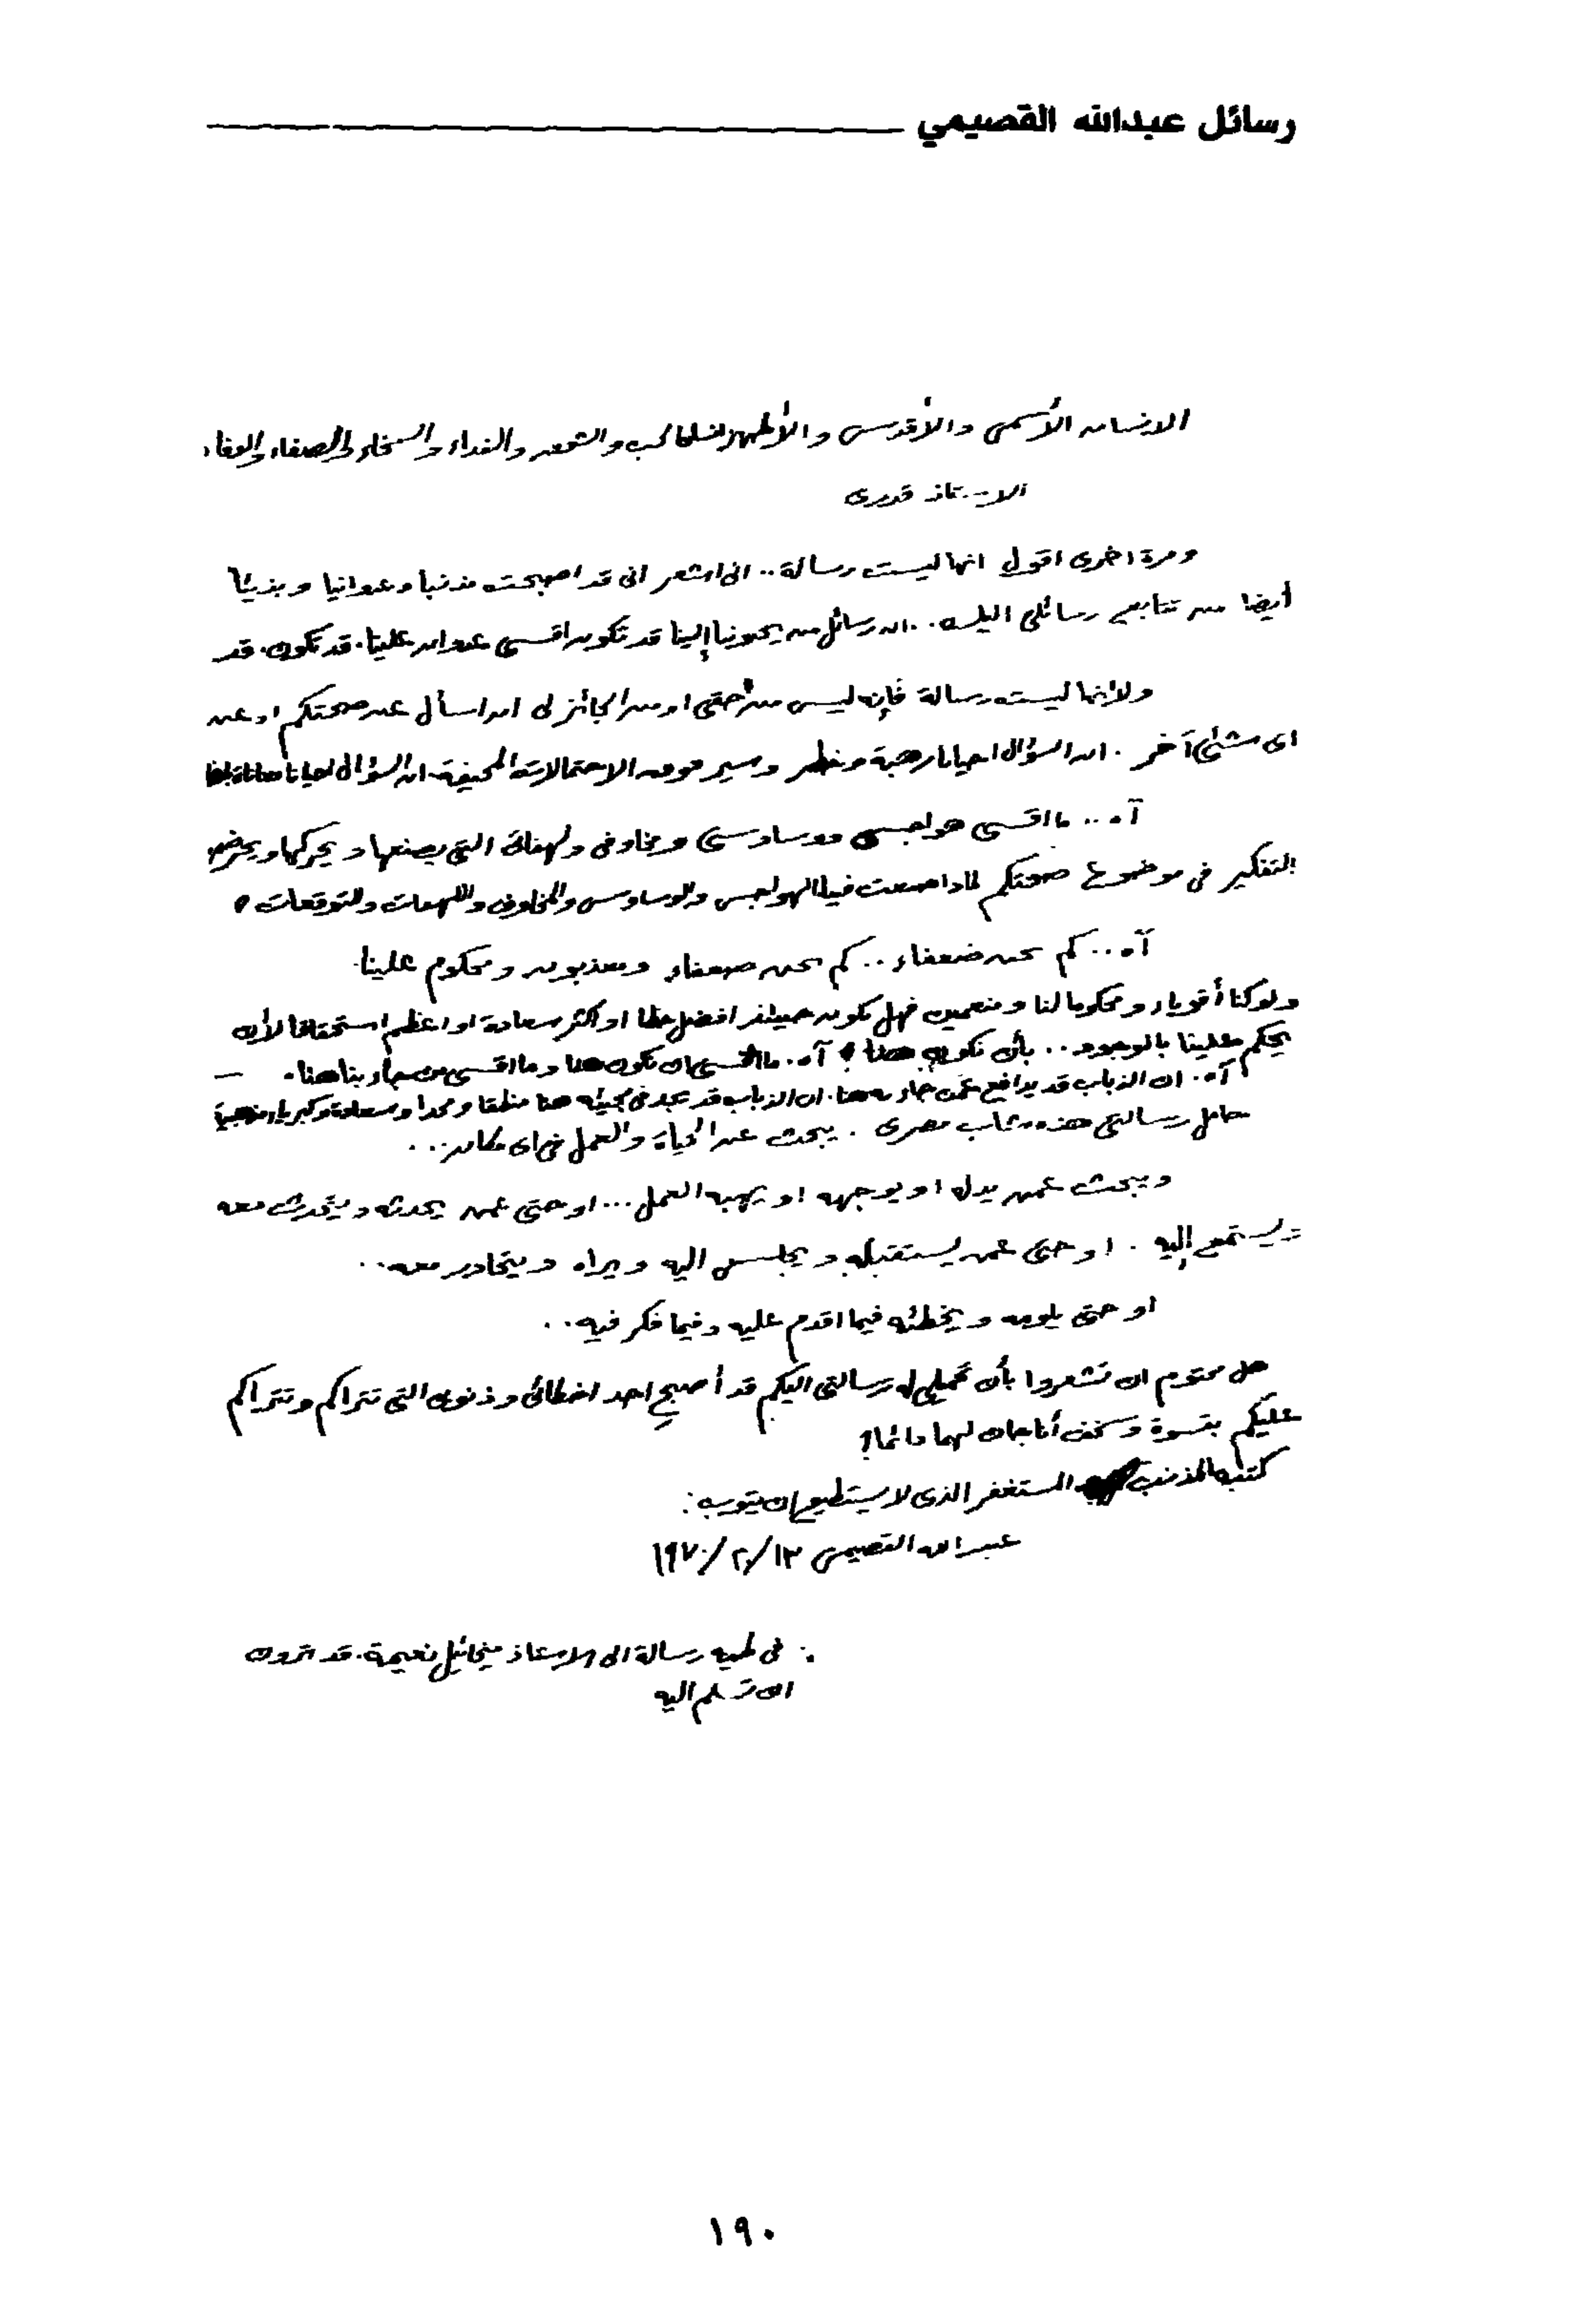 رسائل عبدالله القصيمي
الانسان الأسمى والأقدس والأطهر والسخاء والصفاء والوفاء
الاستاذ قدرى
ومرة اخرى اقول انها ليست رسالة.. انى اشعر انى قد اصبحت مذنبا وعدوانيا وبذيئا
أيضا من تتابع رسائلى اليك.. ان رسائل من يحبوننا إلينا قد تكون اقسى عدوان علينا. قد تكون. قد
ولانها ليست رسالة فإنه ليس من حقى او من الجائز لى ان اسأل عن صحتكم او عن
اى شئ آخر. ان السؤال احيانا رهبة وخطر وسير فوق الاحتمالات المخيفة. ان السؤال احيانا معاناة
آه.. ما اقسى هواجسى ووساوسى ومخاوفى ولهفاتى التى يصنعها ويحركها ويحرضها
التفكير فى موضوع صحتكم لماذا الهواجس والوساوس والمخاوف واللهفات والتوقعات ؟
آه.. كم نحن ضعفاء.. كم نحن ضعفاء ومعذبون ومحكوم علينا.
ولو كنا أقوياء ومحكوما لنا ومنعمين فهل نكون حينئذ افضل حظا او اكثر سعادة او اعظم استحقاقا لأن
يحكم علينا بالوجود.. بأن نكون هنا ؟ آه. ما اقسى ان نكون هنا وما اقسى من جاء بنا هنا. —
آه. ان الذباب قد يدافع عمن جاء به هنا. ان الذباب قد يجد فى مجيئه هنا منطقا ومجدا وسعادة وكبرياء
حامل رسالتى هذه شاب مصرى. يبحث عن الحياة والعمل فى اى مكان..
ويبحث عمن يدله او يوجهه او يهبه العمل... او حتى عمن يحدثه ويتحدث معه
ويستمع إليه. او حتى عمن يستقبله ويجلس اليه ويراه ويتحاور معه..
او حتى يلومه ويخطئه فيما اقدم عليه وفيما فكر فيه..
هل محتوم ان تشعروا بأن تحميلى له رسالتى اليكم قد أصبح احد اخطائى وذنوبى التى تتراكم وتتراكم
عليكم بقسوة وسخف أنا جان لهما دائما؟
كتبه المذنب المستغفر الذى لا يستطيع ان يتوب:
عبد الله القصيمى ١٣/٢/١٩٧٠
: فى طيه رسالة الى الاستاذ ميخائيل نعيمة. قد ترون
ان تسلم اليه
١٩٠